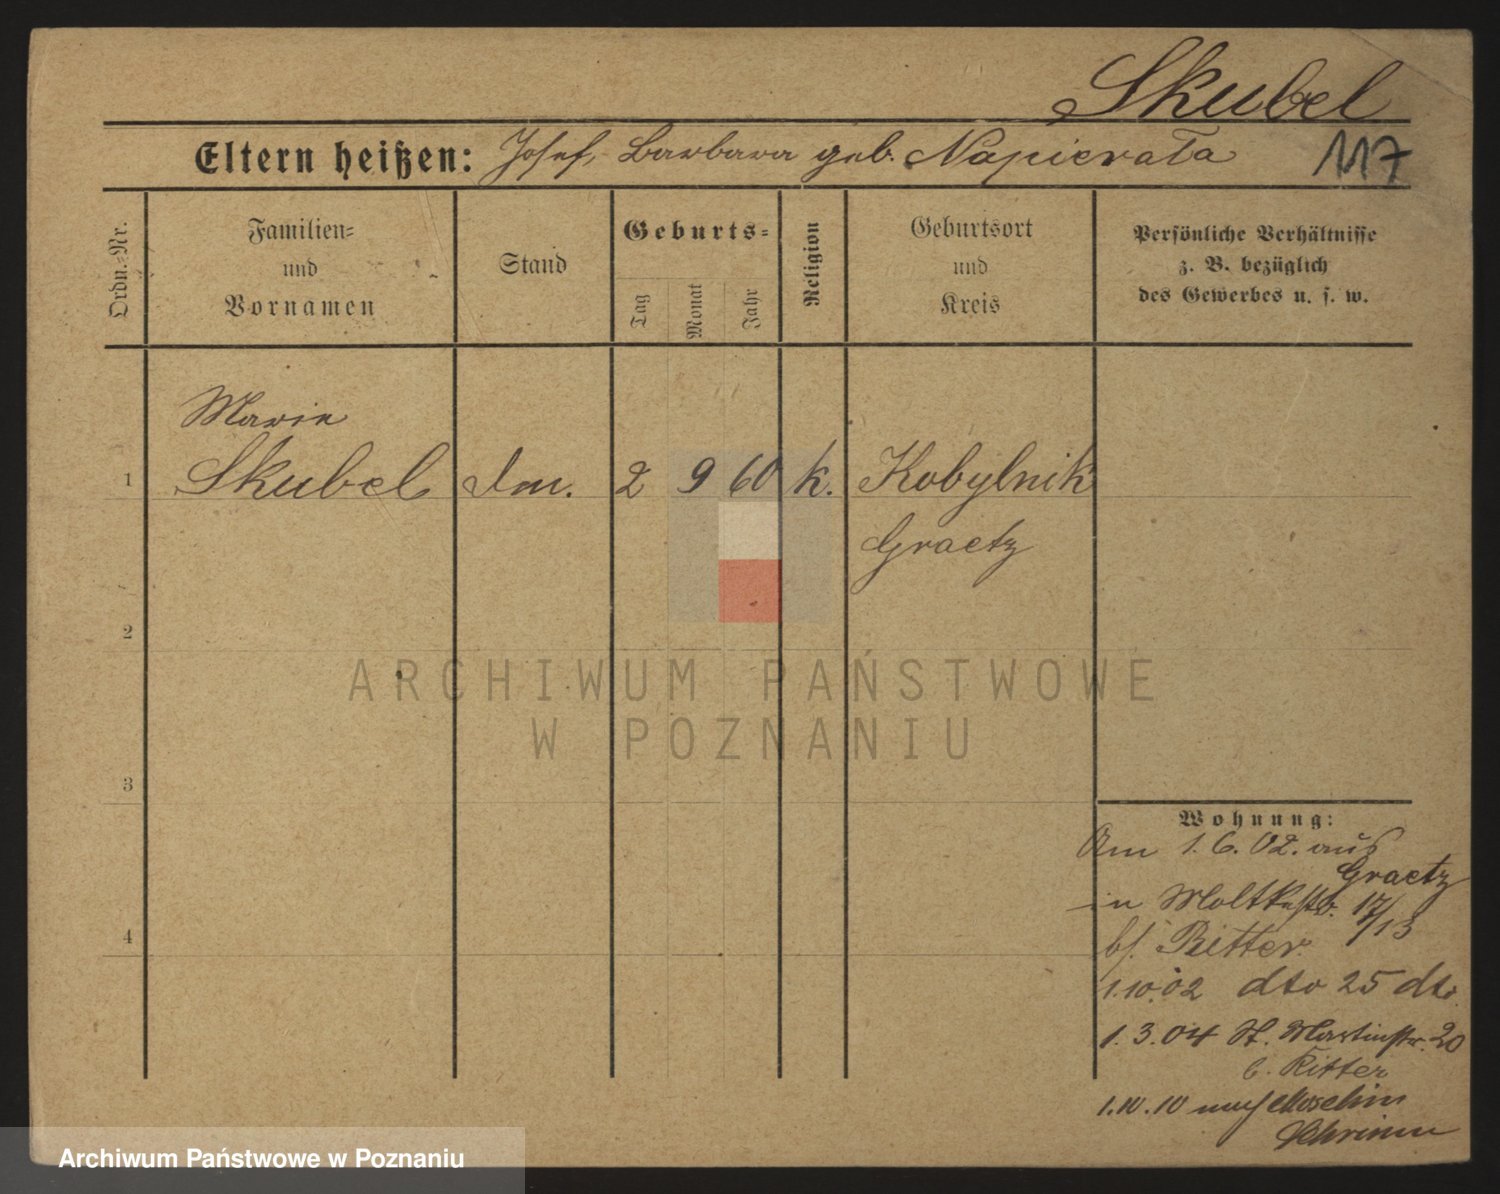 Skubel
Eltern heißen: Josef, Barbara geb. Napierata
117
Ordn.-Nr.
Familien-
und
Vornamen
Stand
Geburts-
Tag
Monat
Jahr
Religion
Geburtsort
und
Kreis
Persönliche Verhältnisse
z. B. bezüglich
des Gewerbes u. s. w.
Marie
1 Skubel 2 9 60 k. Kobylnik
Graetz
2
3
4
Wohnung:
Am 1.6.02. aus
Graetz
in Moltkestr. 17/13
bf. Ritter.
1.10.02 dto 25 dto.
1.3.04 St. Martinstr. 20
b. Ritter
1.10.10 nach Moschin
Schrimm
ARCHIWUM PAŃSTWOWE
W POZNANIU
Archiwum Państwowe w Poznaniu